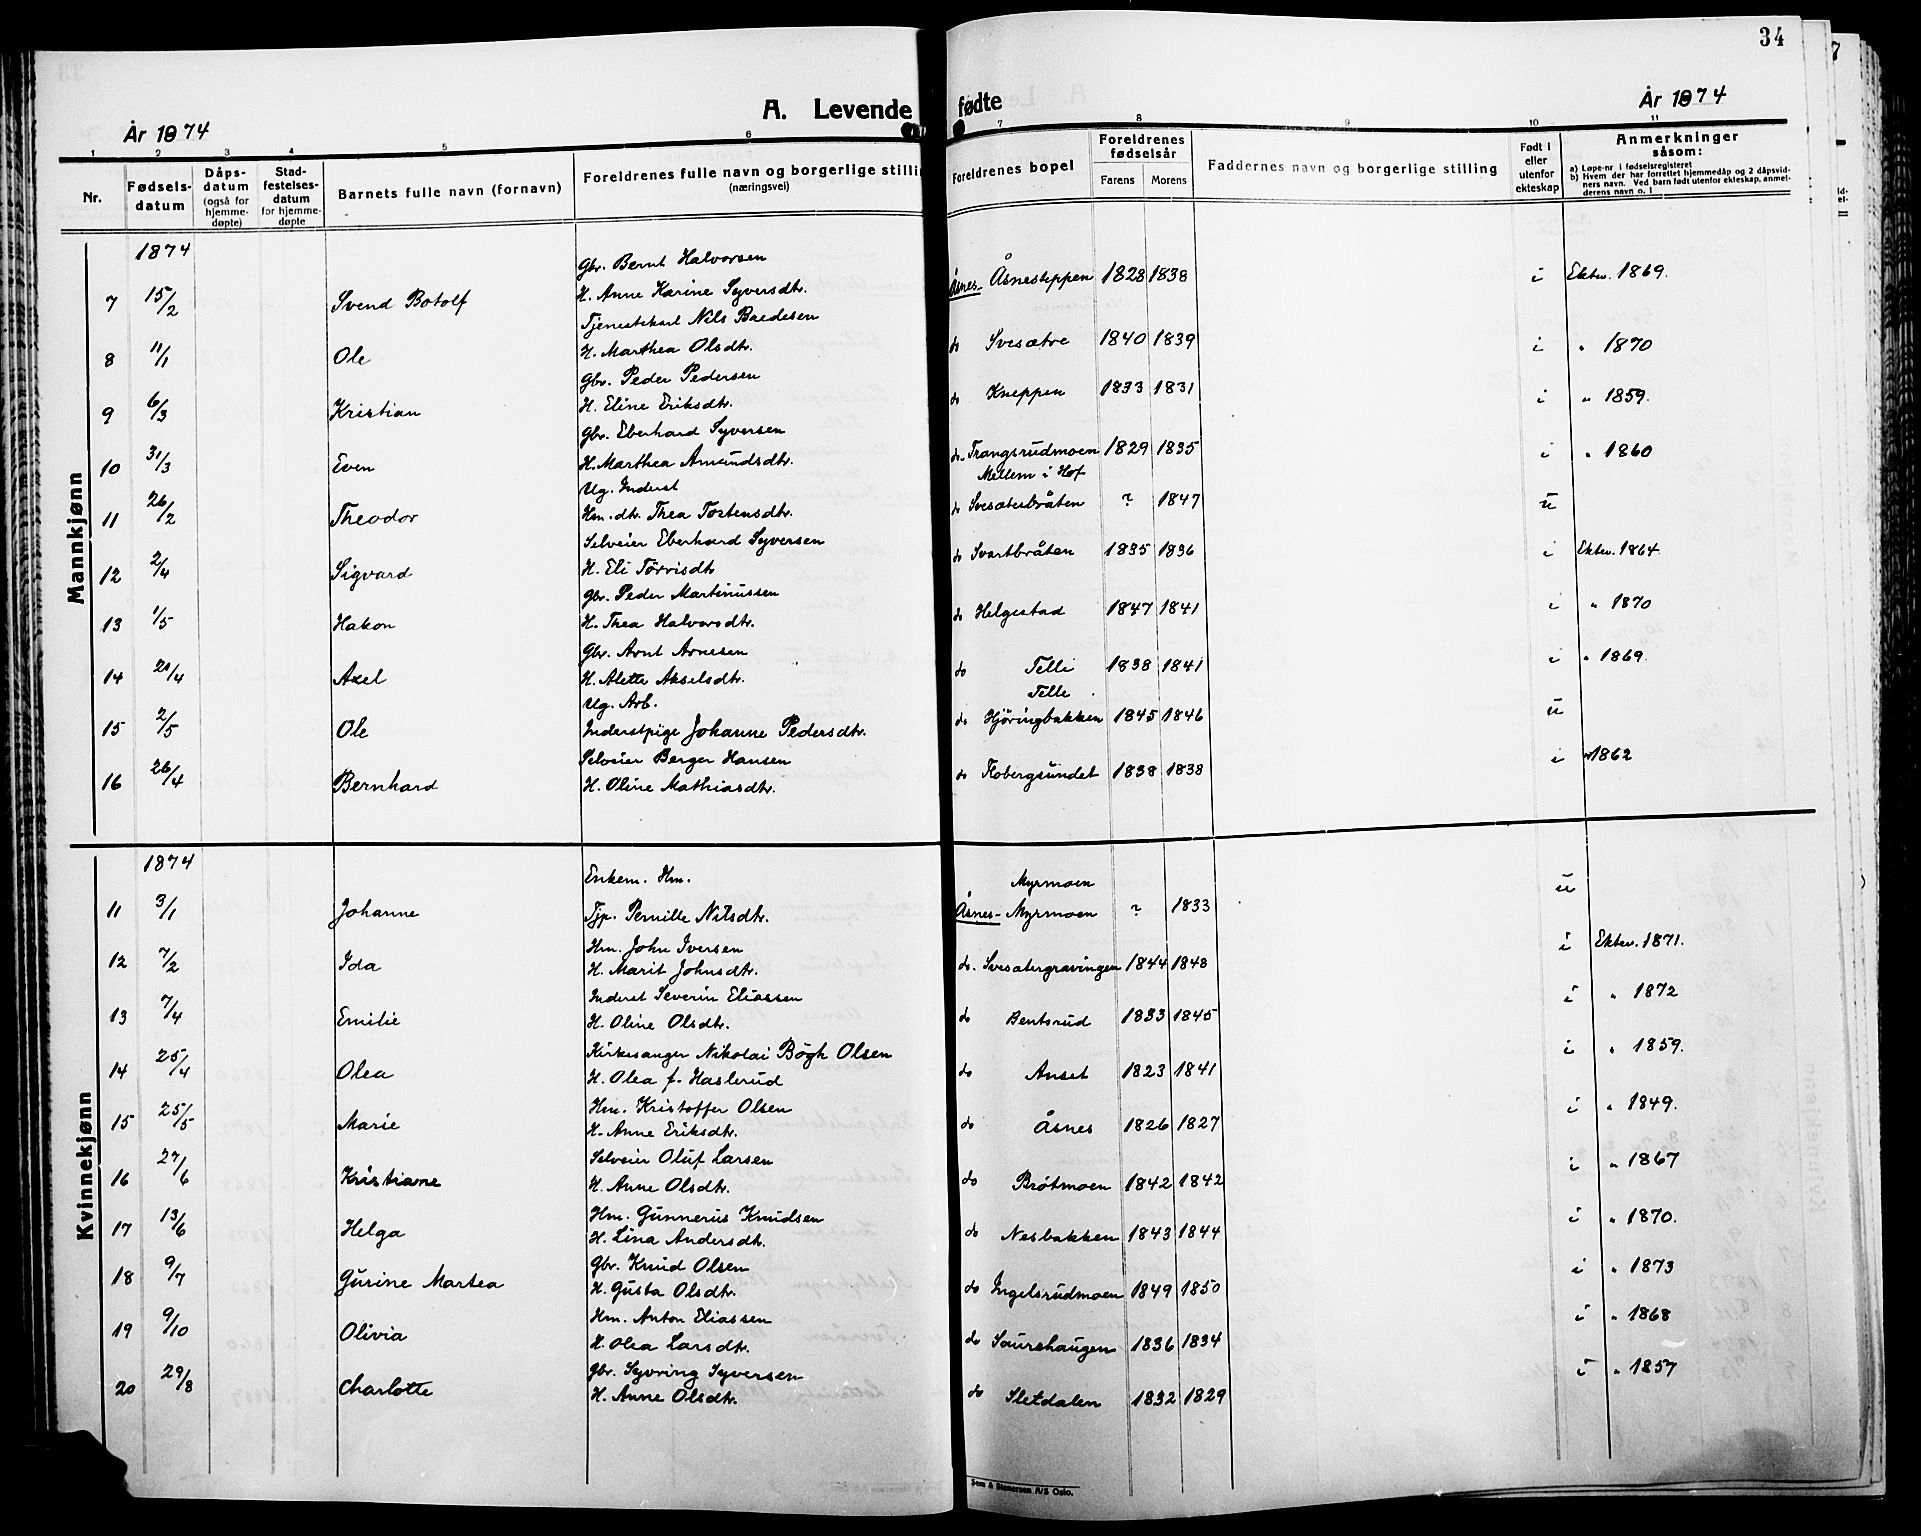 34
År 1874
A. Levende fødte
År 1874
1 2 3 4 5 6 7 8 9 10 11
Nr. Fødselsdatum Dåpsdatum (også for hjemmedøpte) Stadfestelsesdatum for hjemmedøpte Barnets fulle navn (fornavn) Foreldrenes fulle navn og borgerlige stilling (næringsvei) Foreldrenes bopel Foreldrenes fødselsår Farens Morens Faddernes navn og borgerlige stilling Født i eller utenfor ekteskap Anmerkninger såsom:
a) Løpe-nr i fødselsregisteret
b) Hvem der har forrettet hjemmedåp og 2 dåpsvidners navn. Ved barn født utenfor ekteskap, anmelderens navn o. l
Mannkjønn
1874
Gbr. Bernt Halvorsen
7 15/2 Svend Botolf H. Anne Karine Syversdtr. Åsnes- Åsnesteppen 1828 1838 i Ektev. 1869.
Tjenestekarl Nils Baedesen
8 11/1 Ole H. Marthea Olsdtr. do Svesætre 1840 1839 i " 1870
Gbr. Peder Pedersen
9 6/3 Kristian H. Eline Eriksdtr. do Kneppen 1833 1831 i " 1859.
Gbr. Eberhard Syversen
10 31/3 Even H. Marthea Amundsdtr. do Trangsrudmoen 1829 1835 i " 1860
Ug. Inderst Mellem i Hof
11 26/2 Theodor Hm.dtr. Thea Torstensdtr. do Svesæterbråten ? 1847 u
Selveier Eberhard Syversen
12 2/4 Sigvard H. Eli Törrisdtr do Svartbråten 1835 1836 i Ektev. 1864.
Gbr. Peder Martinussen
13 1/5 Hakon H. Thea Halvorsdtr. do Helgestad 1847 1841 i " 1870
Gbr. Arnt Arnesen
14 21/4 Axel H. Alette Akselsdtr. do Telle 1838 1841 i " 1869.
Ug. Arb. Telle
15 2/5 Ole Inderstpige Johanne Pedersdtr. do Hjöringbakken 1845 1846 u
Selveier Berger Hansen
16 26/4 Bernhard H. Oline Mathiasdtr. do Kobergsundet 1838 1838 i " 1862
Kvinnekjønn
1874
Enkem. Hm. Myrmoen u
11 3/1 Johanne Tjp. Pernille Nilsdtr. Åsnes- Myrmoen ? 1833
Hm. John Iversen
12 7/2 Ida H. Marit Johnsdtr. do. Svesætergravingen 1844 1848 i Ektev. 1871.
Inderst Severin Eliassen
13 7/4 Emilie H. Oline Olsdtr. do Bentsrud 1833 1845 i " 1872
Kirkesanger Nikolai Bögh Olsen
14 25/4 Olea H. Olea f. Haslerud do Anset 1823 1841 i " 1859.
Hm. Kristoffer Olsen
15 25/5 Marie H. Anne Eriksdtr. do Åsnes 1826 1827 i " 1849.
Selveier Oluf Larsen
16 27/6 Kristiane H. Anne Olsdtr. do Bråtmoen 1842 1842 i " 1867
Hm. Gunnerus Knudsen
17 13/6 Helga H. Lina Andersdtr. do Nesbakken 1843 1844 i " 1870.
Gbr. Knud Olsen
18 9/7 Gurine Martea H. Gusta Olsdtr. do Ingelsrudmoen 1849 1850 i " 1873
Hm. Anton Eliassen
19 9/10 Olivia H. Olea Larsdtr. do Saurehaugen 1836 1834 i " 1868
Gbr. Syvring Syversen
20 29/8 Charlotte H. Anne Olsdtr. do Sletdalen 1832 1829 i " 1857
Sem & Stenersen A/S Oslo.